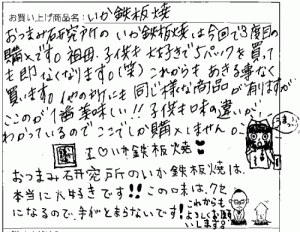 お買い上げ商品名：いか鉄板焼
おつまみ研究所の いか鉄板焼は今回で3度目の
購入です。祖母、子供も大好きで5パックを買って
も即なくなります。(笑) これからもあきる事なく
買います。他の所にも同じ様な商品が有りますが
ここのが1番美味しい!!子供も味の違いが
わかっているのでここでしか購入しません。
I♡いか鉄板焼
うまい
おつまみ研究所のいか鉄板焼は、
本当に大好きです!!この味は、クセ
になるので、手がとまらないです!
これからも
よろしくお願
いします。